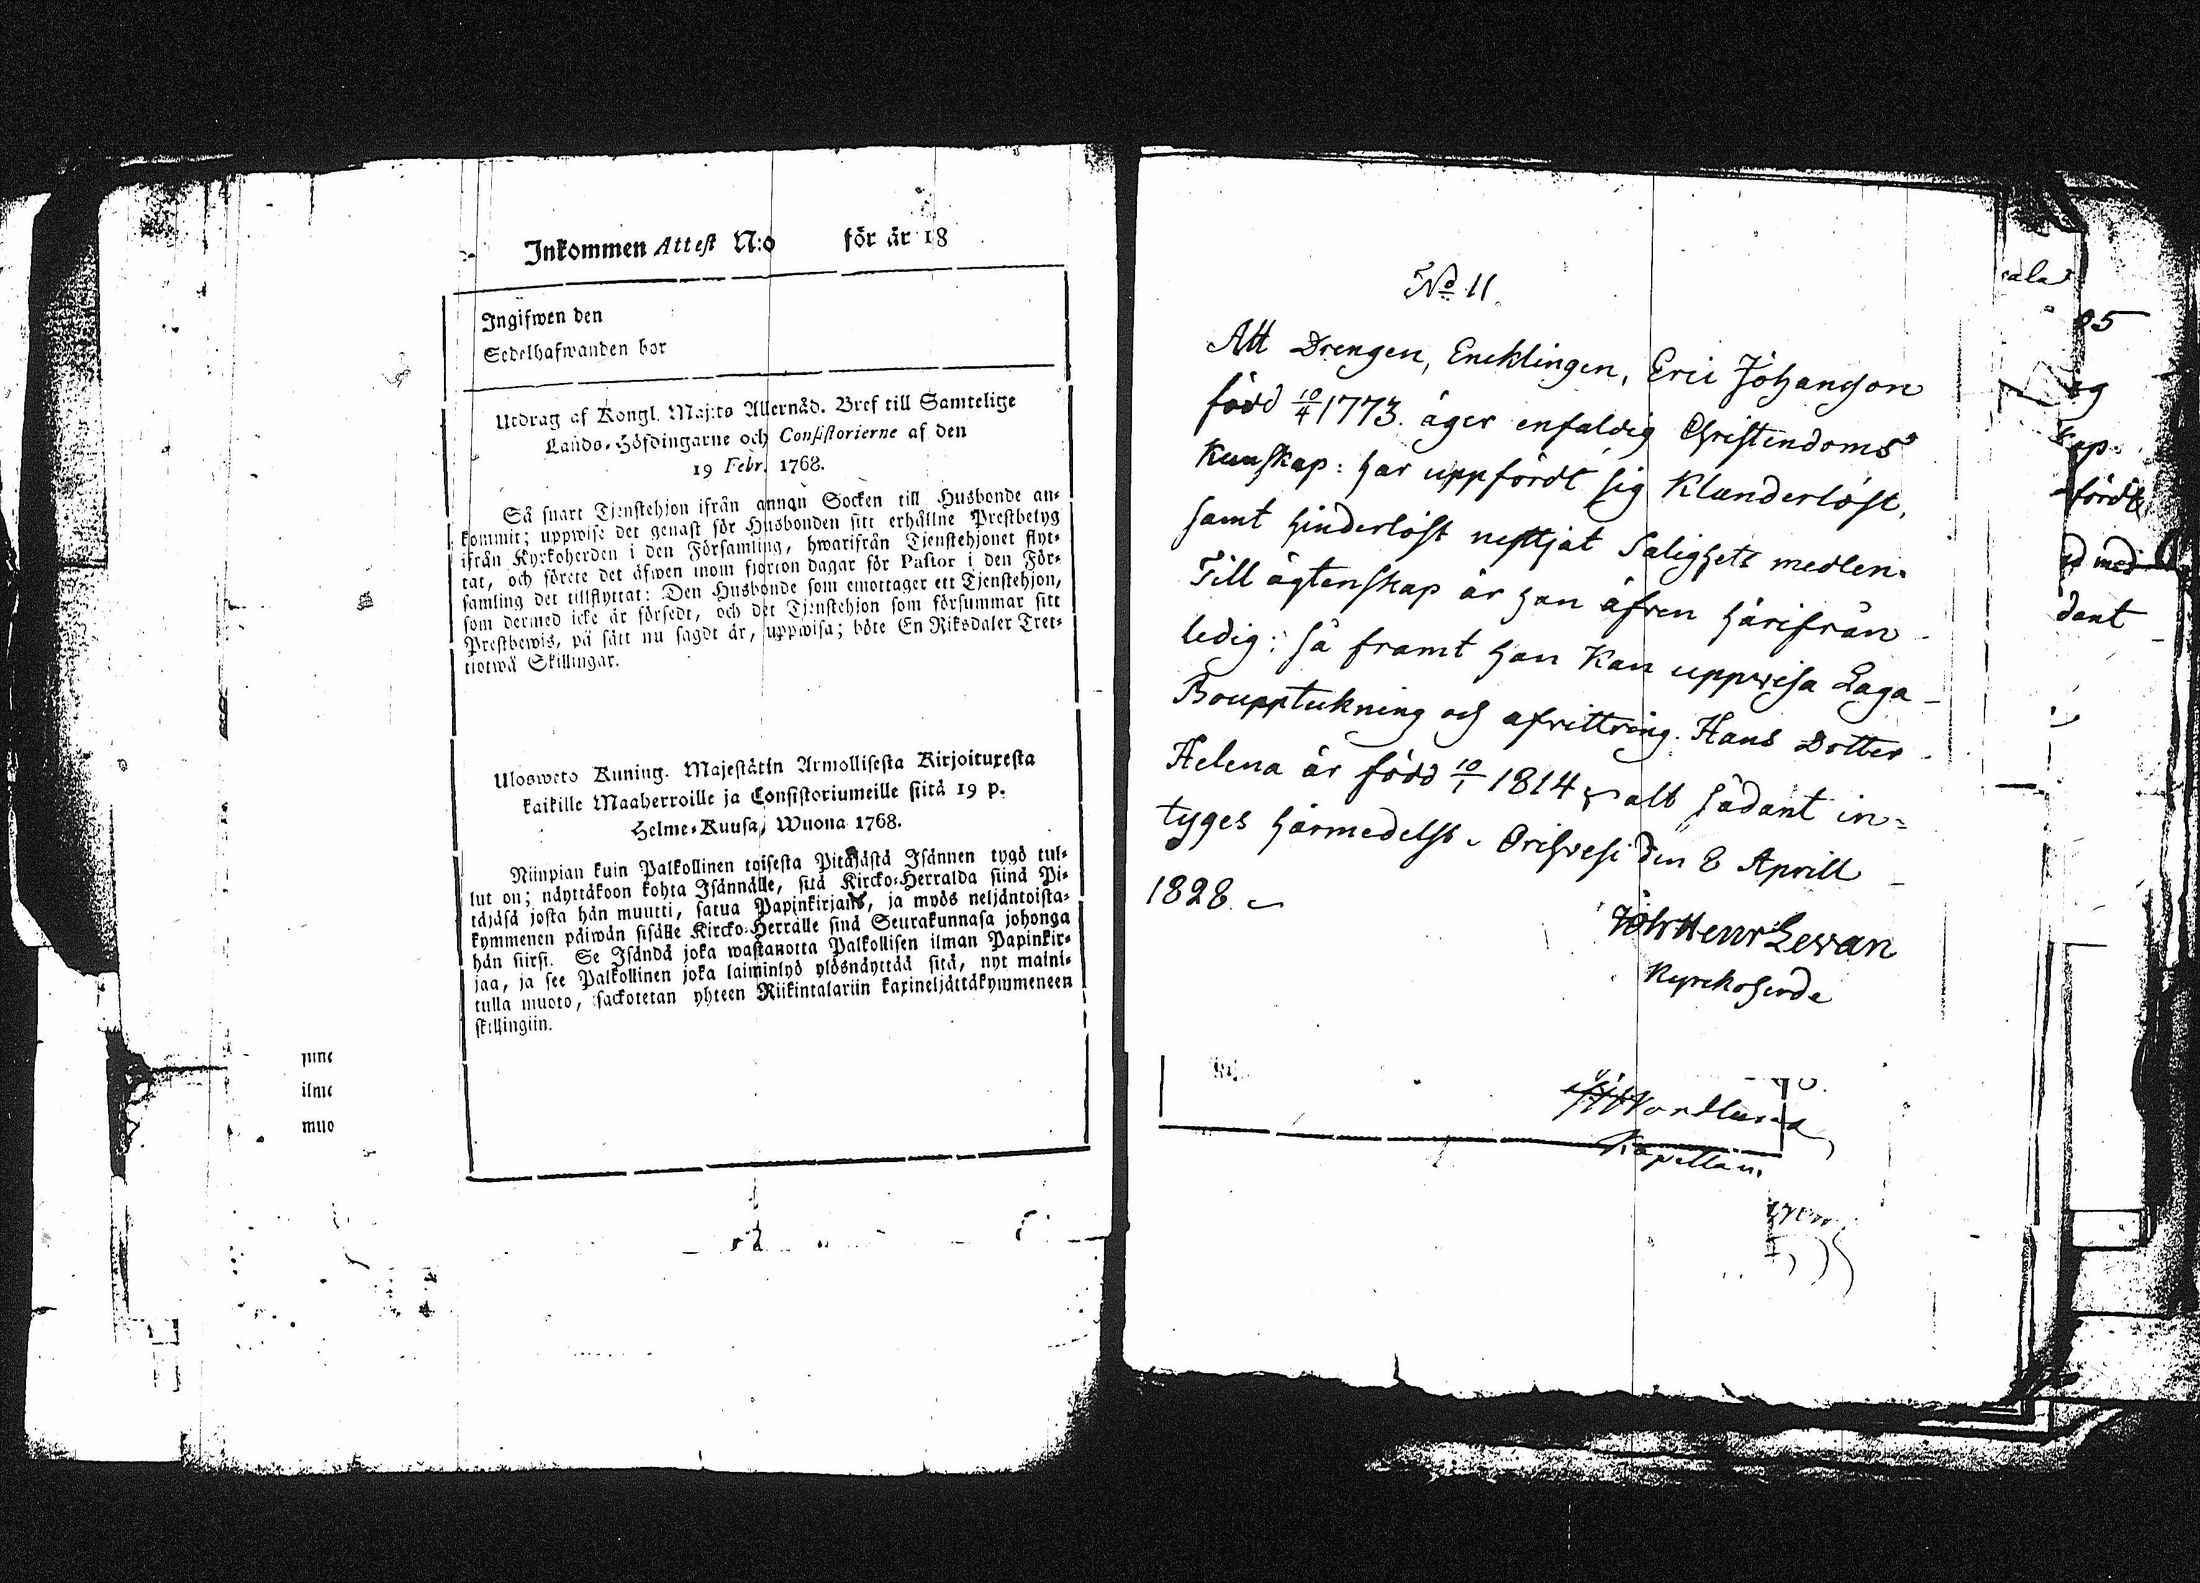 Inkommen Attest N:o för år 18
Ingifwen den
Sedelhafwanden bor
Utdrag af Kongl. Maj:ts Allernåd. Bref till Samtelige
Lands-Höfdingarne och Consistorierne af den
19 Febr. 1768.
Så snart Tjenstehjon ifrån annan Socken till Husbonde an-
kommit; uppwise det genast för Husbonden sitt erhållne Prestbetyg
ifrån Kyrkoherden i den Församling, hwarifrån Tjenstehjonet flyt-
tat, och förete det äfwen inom fjorton dagar för Pastor i den För-
samling det tillflyttat: Den Husbonde som emottager ett Tjenstehjon,
som dermed icke är försedt, och det Tjenstehjon som försummar sitt
Prestbewis, på sätt nu sagdt är, uppwisa; böte En Riksdaler Tret-
tiotwå Skillingar.
Ulosweto Kuning. Majestätin Armollisesta Kirjoituxesta
kaikille Maaherroille ja Consistoriumeille siitä 19 p.
Helme-Kuusa, Wuona 1768.
Niinpian kuin Palkollinen toisesta Pitäjästä Isännen tygö tul-
lut on; näyttäkoon kohta Isännälle, sitä Kircko-Herralda siinä Pi-
täjäsä josta hän muutti, saatua Papinkirjans, ja myös neljäntoista-
kymmenen päiwän sisälle Kircko-Herralle siinä Seurakunnasa johonga
hän siirsi. Se Isändä joka wastanotta Palkollisen ilman Papinkir-
jaa, ja see Palkollinen joka laiminlyö ylösnäyttää sitä, nyt maini-
tulla muoto, sackotetan yhteen Riikintalariin kaxineljättäkymmeneen
skillingiin.
june
ilme
muo
No 11.
Att Drengen, Encklingen, Eric Johansson
född 10/4 1773. äger enfaldig Christendoms
Kunskap: har uppfördt sig Klanderlöst,
samt hinderlöst nyttjat Salighets medlen.
Till ägtenskap är han äfven härifrån
ledig: så framt han kan uppvisa Laga
Boupptekning och afvittring. Hans Dotter
Helena är född 10/1 1814 allt sådant in-
tyges härmedelst. Orihvesi den 8 Aprill
1828.
Joh Henr Levan
Kyrckoherde
Nordlund
Kapellan.
ala
85
fördt
dant